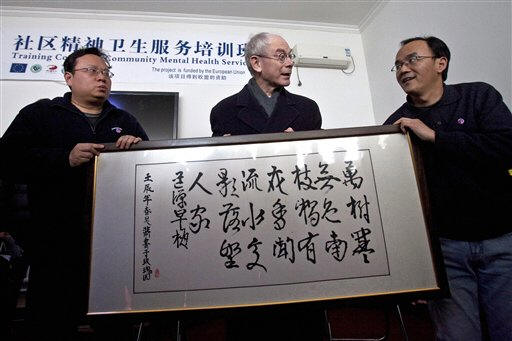 社区精神卫生服务培训班
Training Community Mental Health Service
The project is funded by the European Union
该项目得到欧盟的资助
萬樹寒
無色南
枝獨有
花香聞
流水處
影落野
人家
道源早梅
壬辰年春